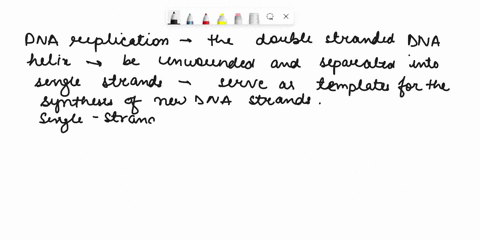 DNA replication → the double stranded DNA
helix → be unwounded and separated into
single strands → serve as templates for the
synthesis of new DNA strands.
Single-stranc